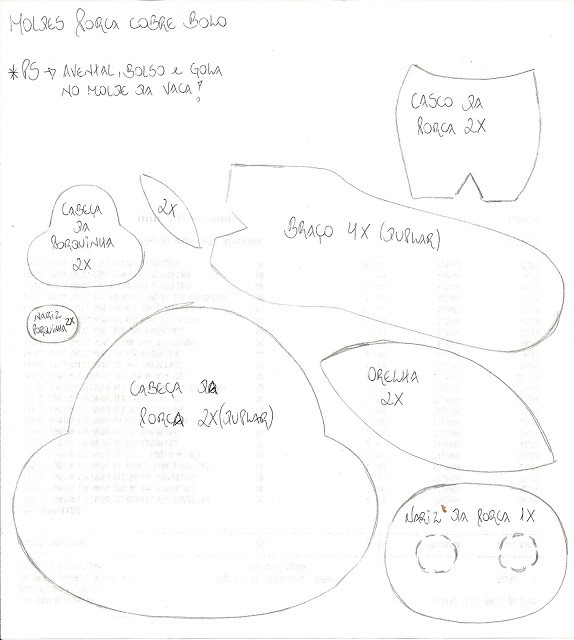 MOLDES PORCA COBRE BOLO
*PS → AVENTAL, BOLSO e GOLA
NO MOLDE DA VACA!
CASCO DA
PORCA 2X
2X
CABEÇA
DA
PORQUINHA
2X
BRAÇO 4X (DUPLAR)
NARIZ
PORQUINHA 2X
ORELHA
2X
CABEÇA DA
PORCA 2X (DUPLAR)
NARIZ DA PORCA 1X